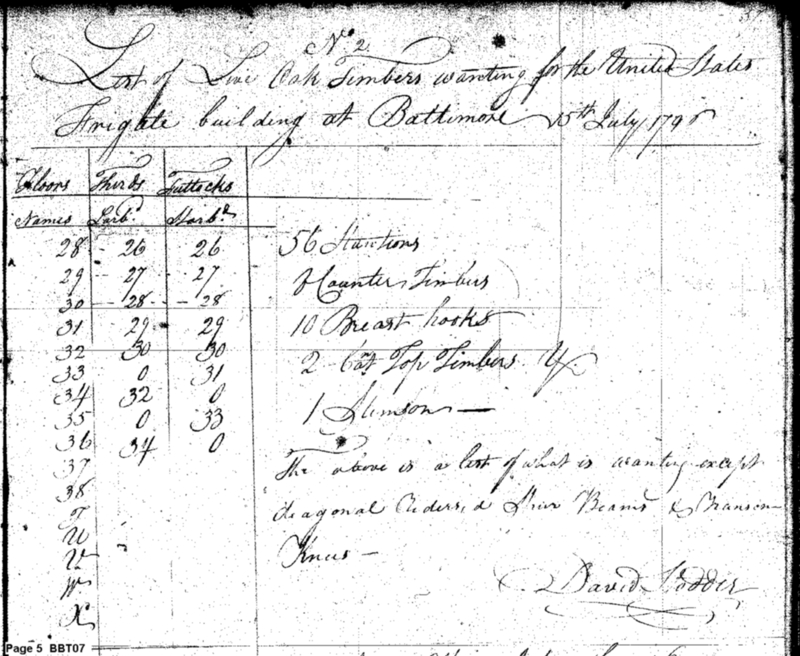 No. 2
List of Live Oak Timbers wanting for the United States
Frigate building at Baltimore 15th July 1796
Floors Thirds Futtocks
Names Larbd. Starbd.
28 26 26
29 27 27
30 28 28
31 29 29
32 30 30
33 0 31
34 32 0
35 0 33
36 34 0
37
38
T
U
V
W
X
56 Stantions
8 Counter Timbers
10 Breast hooks
2 Cat Top Timbers
1 Stemson
The above is a list of what is wanting except
diagonal Riders, Beams & Transom
Knees
David Stodder
Page 5 BBT07